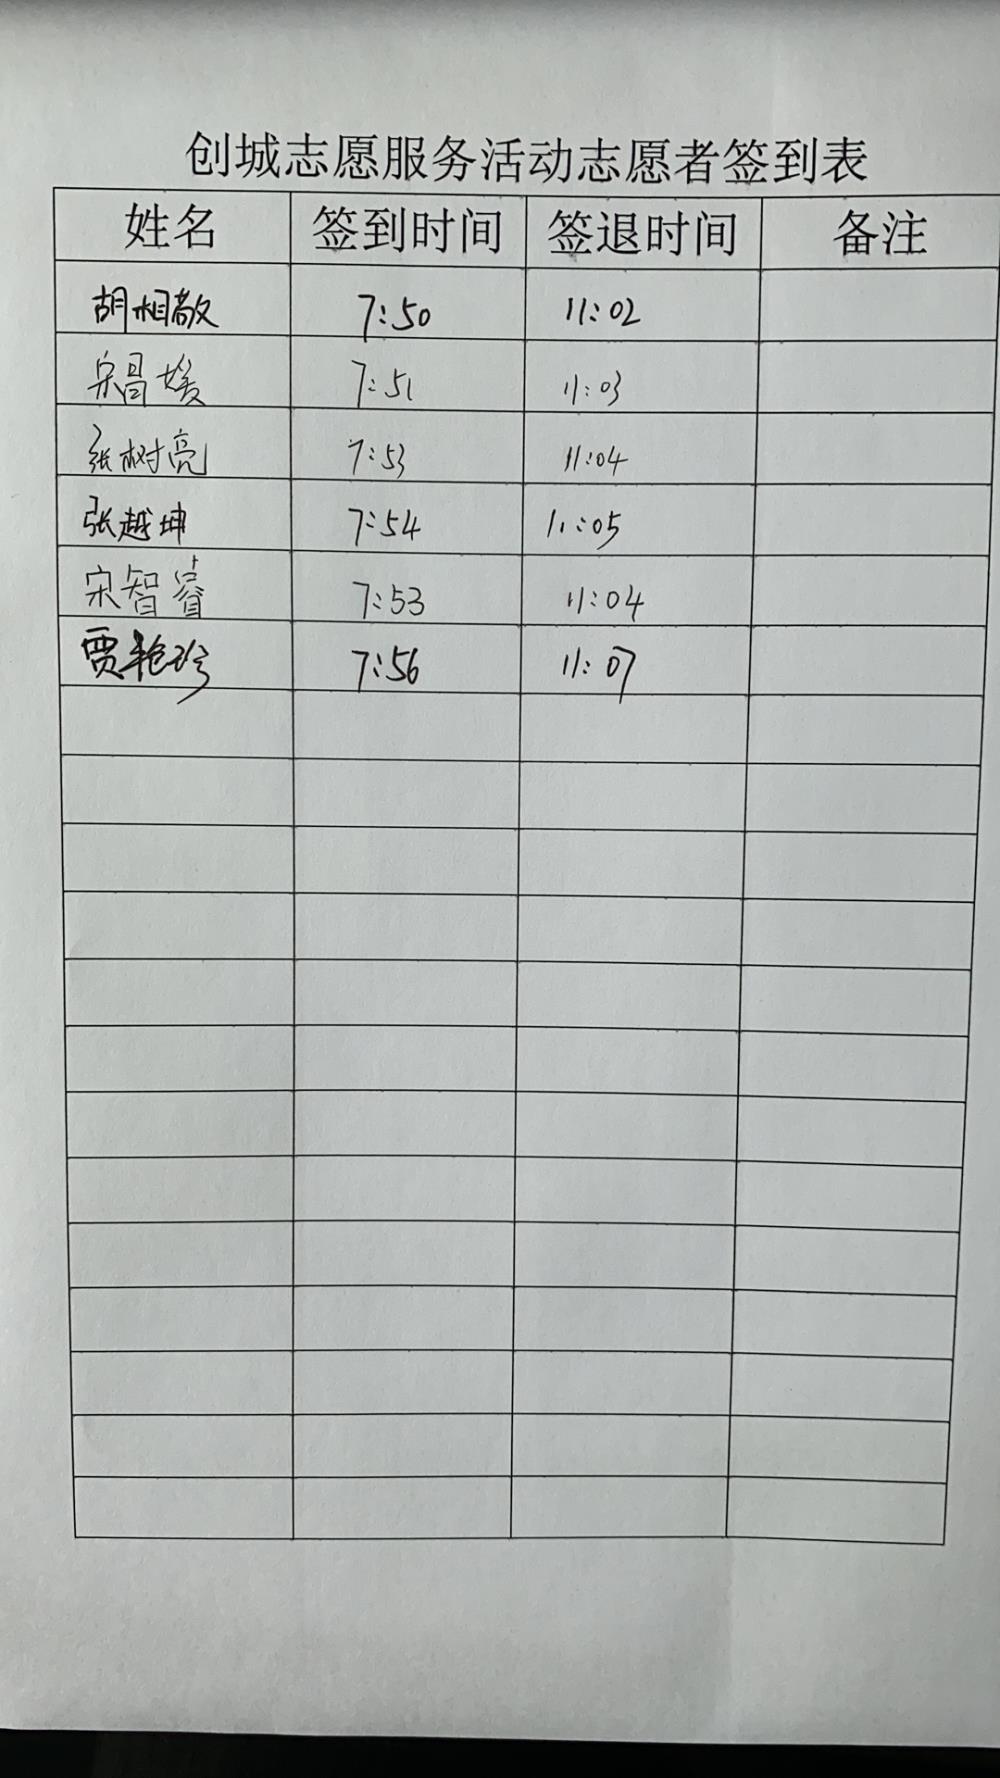 创城志愿服务活动志愿者签到表
姓名 签到时间 签退时间 备注
胡相敬 7:50 11:02
宋昌媛 7:51 11:03
张树亮 7:53 11:04
张越坤 7:54 11:05
宋智睿 7:53 11:04
贾艳珍 7:56 11:07